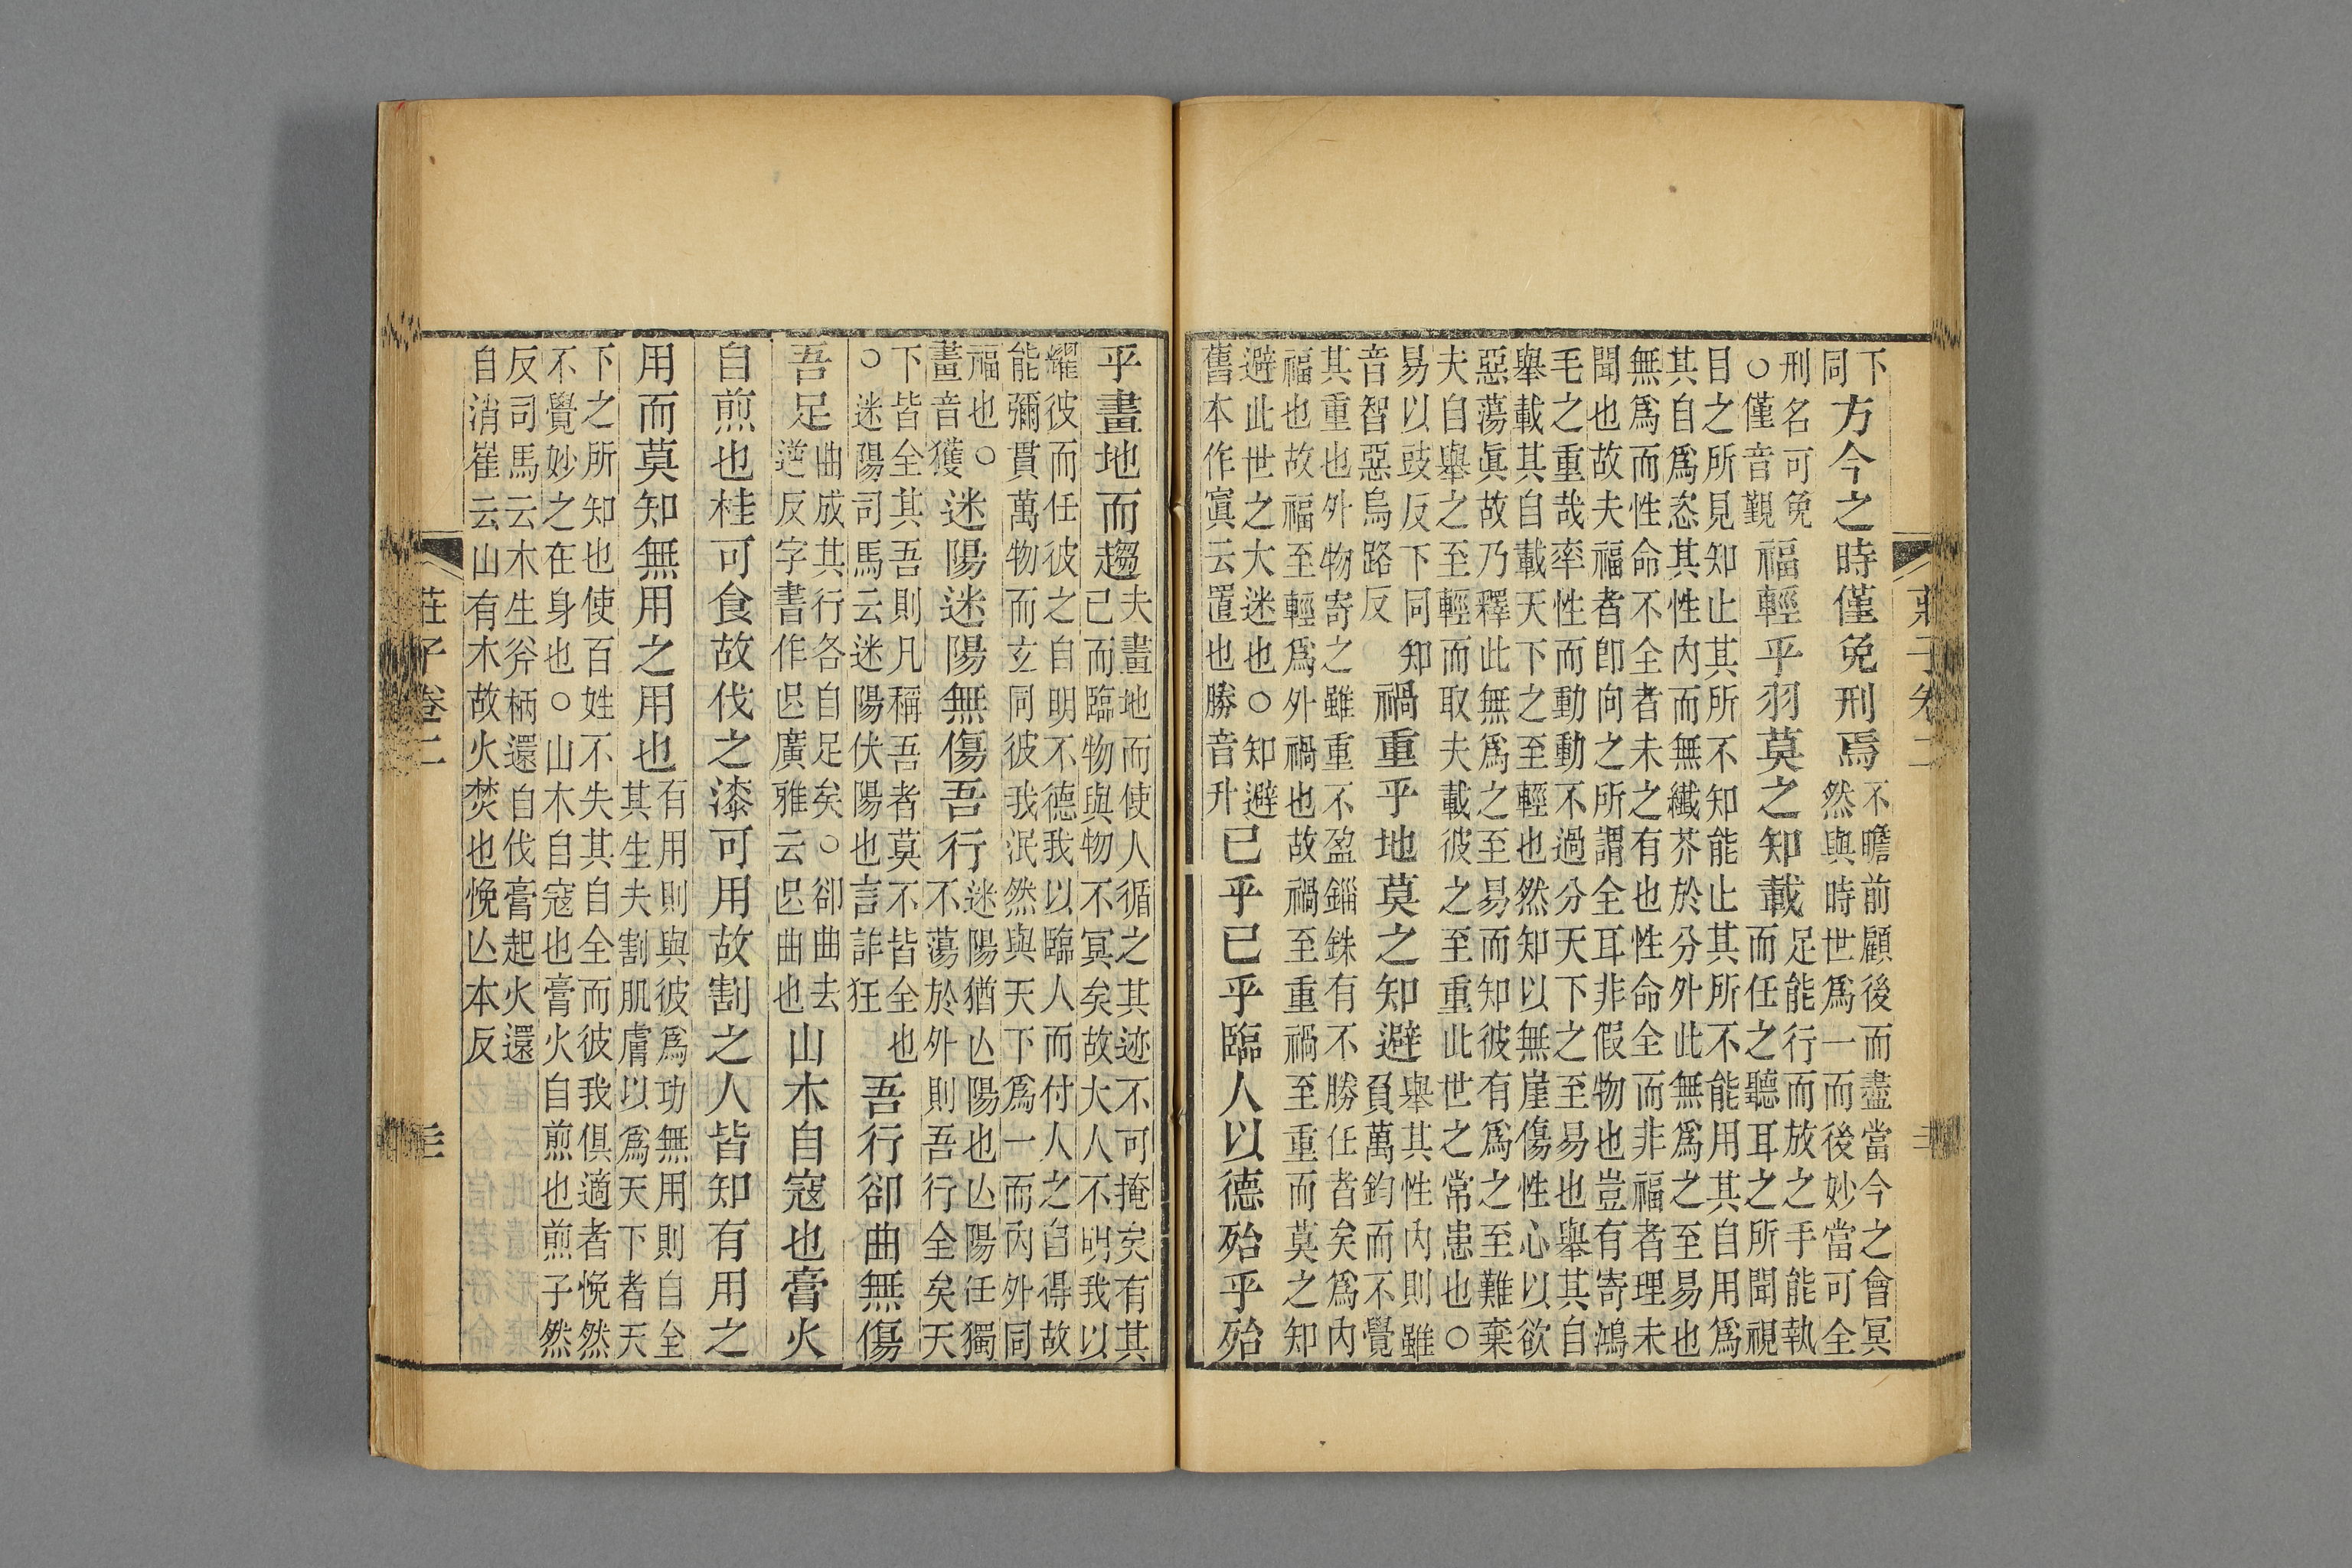 莊子卷二
下
同
方今之時僅免刑焉
不瞻前顧後而盡當今之會冥
然與時世爲一而後妙當可全
刑名可免
○僅音覲
福輕乎羽莫之知載
足能行而放之手能執
而任之聽耳之所聞視
目之所見知止其所不知能止其所不能用其自用爲
其自爲恣其性內而無纖芥於分外此無爲之至易也
無爲而性命不全者未之有也性命全而非福者理未
聞也故夫福者卽向之所謂全耳非假物也豈有寄鴻
毛之重哉率性而動動不過分天下之至易也舉其自
舉載其自載天下之至輕也然知以無崖傷性心以欲
惡蕩眞故乃釋此無爲之至易而知彼有爲之至難棄
夫自舉之至輕而取夫載彼之至重此世之常患也○
易以豉反下同知
音智惡烏路反
禍重乎地莫之知避
舉其性內則雖
負萬鈞而不覺
其重也外物寄之雖重不盈錙銖有不勝任者矣爲內
福也故福至輕爲外禍也故禍至重禍至重而莫之知
避此世之大迷也○知避
舊本作寘云置也勝音升
已乎已乎臨人以德殆乎殆
乎畫地而趨
夫畫地而使人循之其迹不可掩矣有其
已而臨物與物不冥矣故大人不明我以
耀彼而任彼之自明不德我以臨人而付人之自得故
能彌貫萬物而玄同彼我泯然與天下爲一而內外同
福也○
畫音獲
迷陽迷陽無傷吾行
迷陽猶亾陽也亾陽任獨
不蕩於外則吾行全矣天
下皆全其吾則凡稱吾者莫不皆全也
○迷陽司馬云迷陽伏陽也言詐狂
吾行卻曲無傷
吾足
曲成其行各自足矣○卻曲去
逆反字書作𨒂廣雅云𨒂曲也
山木自寇也膏火
自煎也桂可食故伐之漆可用故割之人皆知有用之
用而莫知無用之用也
有用則與彼爲功無用則自全
其生夫割肌膚以爲天下者天
下之所知也使百姓不失其自全而彼我俱適者悗然
不覺妙之在身也○山木自寇也膏火自煎也煎子然
反司馬云木生斧柄還自伐膏起火還
自消崔云山有木故火焚也悗亾本反
莊子卷二